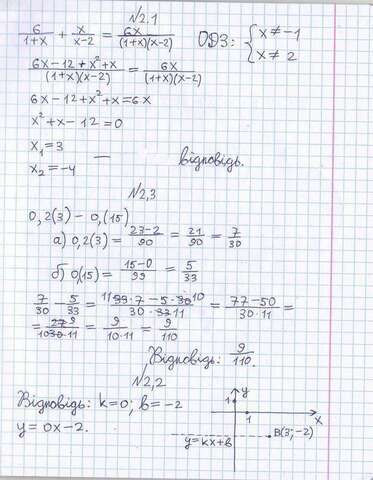 №2,1
6/(1+x) + x/(x-2) = 6x/((1+x)(x-2))   ОДЗ: { x ≠ -1
x ≠ 2
(6x-12+x²+x)/((1+x)(x-2)) = 6x/((1+x)(x-2))
6x-12+x²+x=6x
x²+x-12=0
x₁=3
x₂=-4 — відповідь.
№2,3
0,2(3) - 0,(15)
а) 0,2(3) = (23-2)/90 = 21/90 = 7/30
б) 0,(15) = (15-0)/99 = 5/33
7/30 - 5/33 = (11 33·7-5·30 10)/(30·33 11) = (77-50)/(30·11) =
= 27 9/(10 30·11) = 9/(10·11) = 9/110
Відповідь: 9/110.
№2,2
Відповідь: k=0; b=-2
y=0x-2.
y
1
1
x
y=kx+b
B(3;-2)